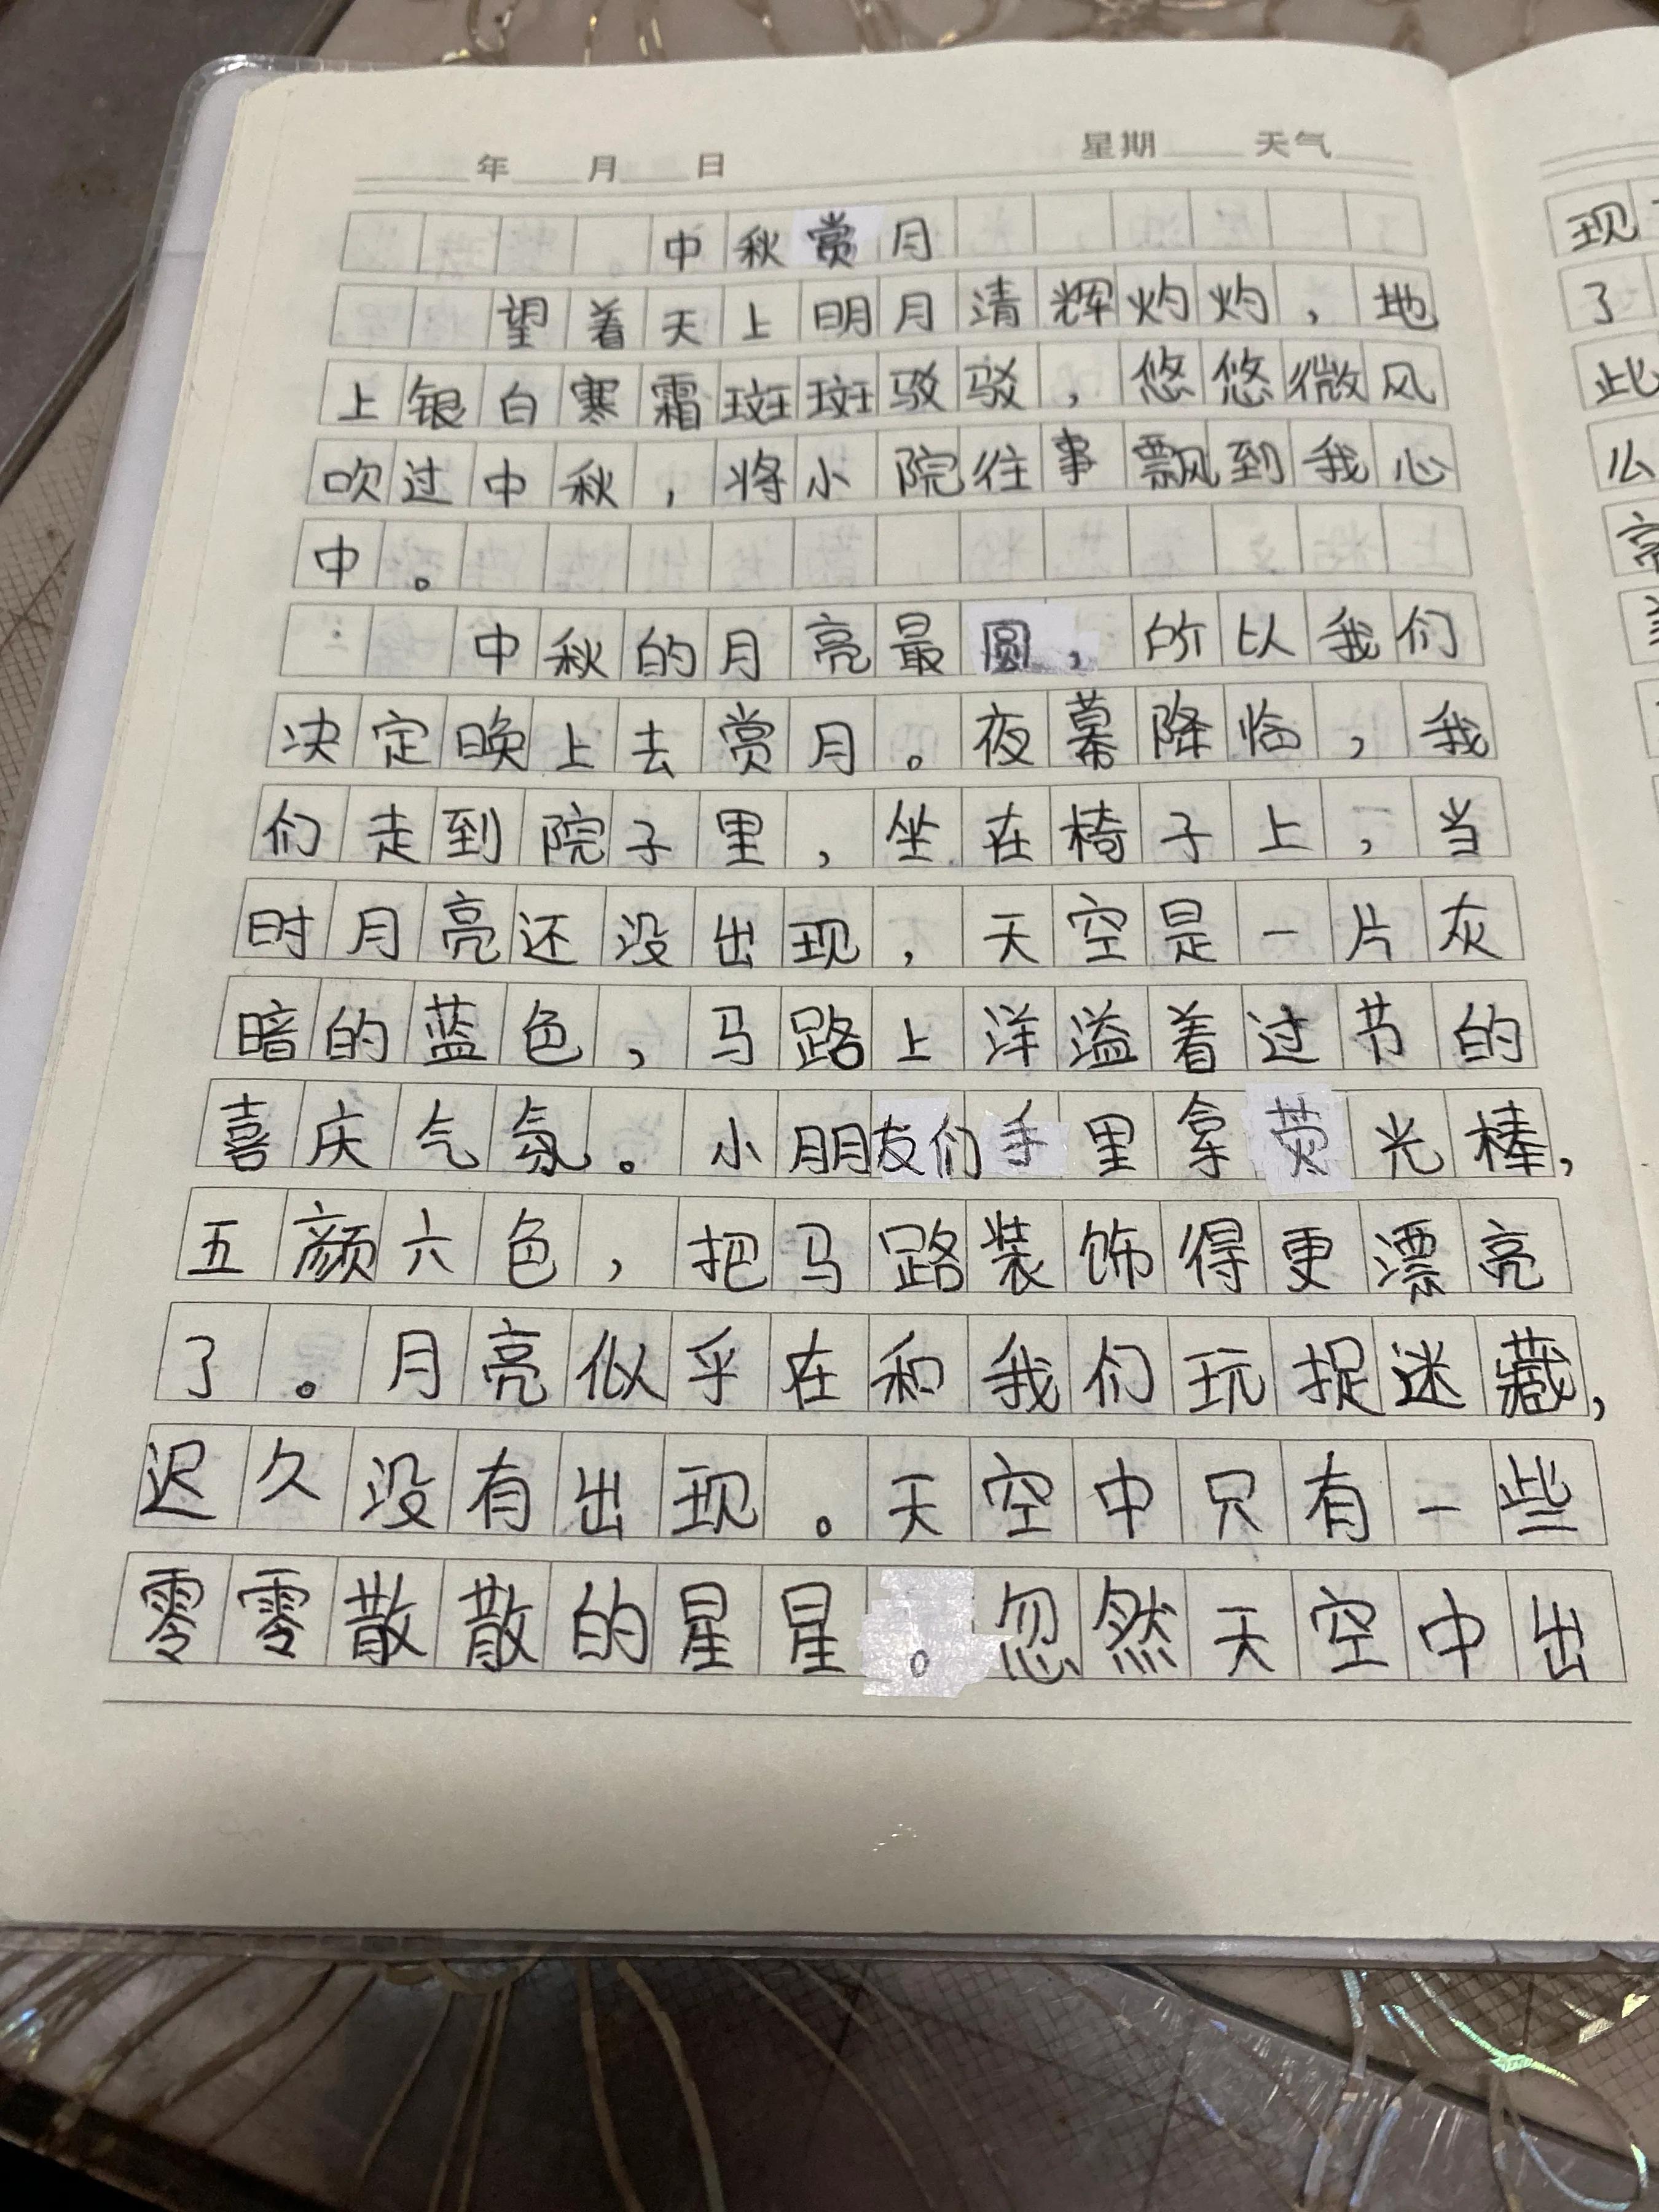 年 月 日 星期 天气
中秋赏月
望着天上明月清辉灼灼，地
上银白寒霜斑斑驳驳，悠悠微风
吹过中秋，将小院往事飘到我心
中。
中秋的月亮最圆，所以我们
决定晚上去赏月。夜幕降临，我
们走到院子里，坐在椅子上，当
时月亮还没出现，天空是一片灰
暗的蓝色，马路上洋溢着过节的
喜庆气氛。小朋友们手里拿荧光棒，
五颜六色，把马路装饰得更漂亮
了。月亮似乎在和我们玩捉迷藏，
迟久没有出现。天空中只有一些
零零散散的星星。忽然天空中出
现
了
此
么
亮